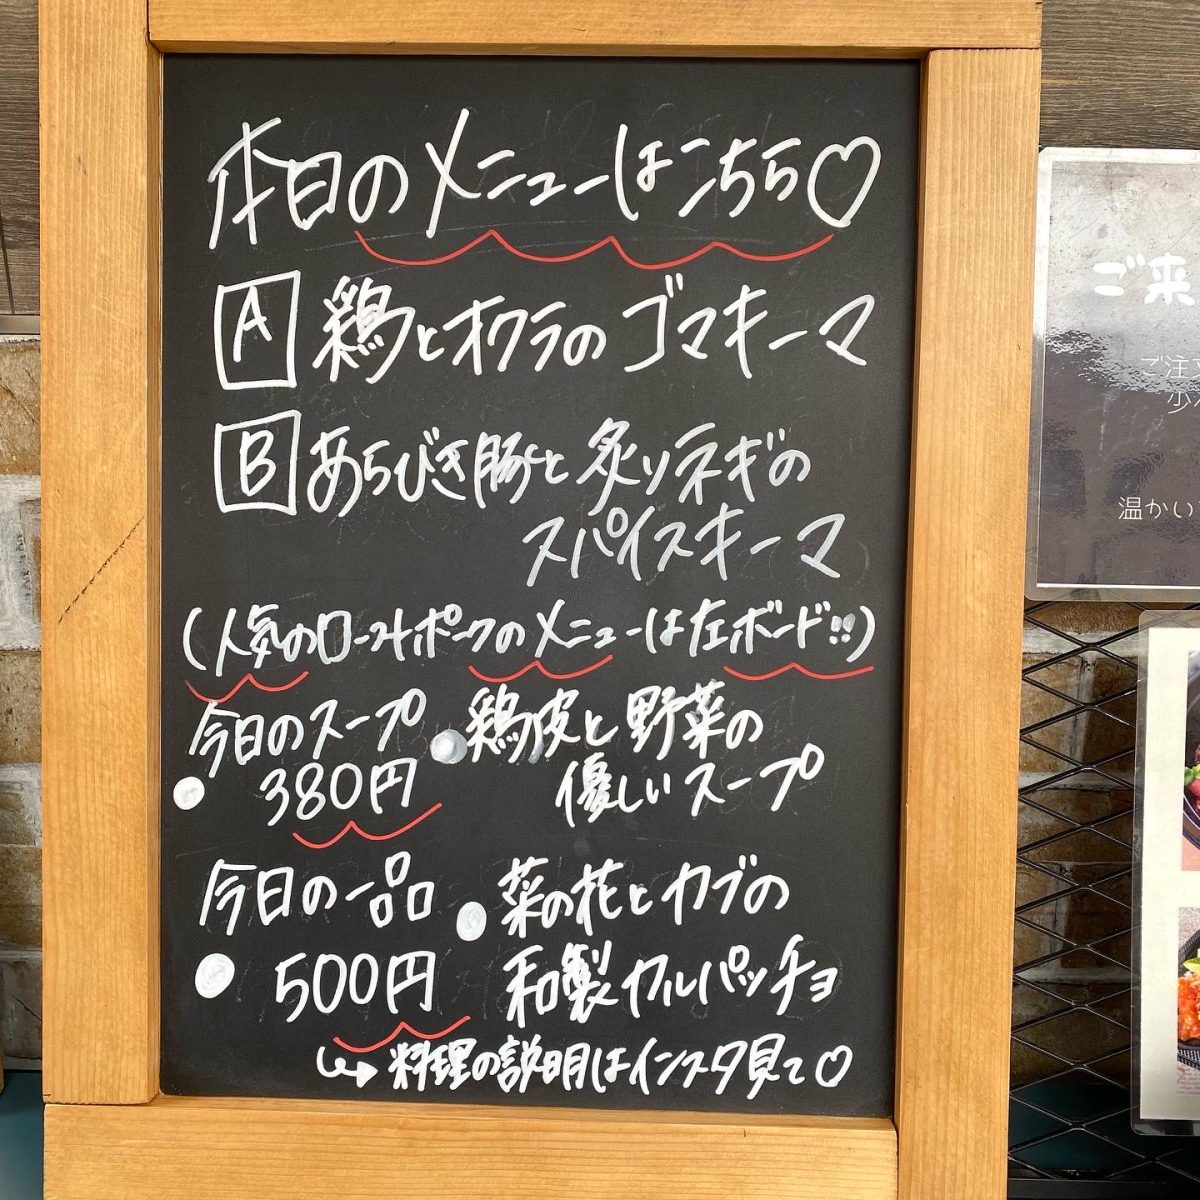 本日のメニューはこちら♡
A 鶏とオクラのゴマキーマ
B あらびき豚と炙りネギの
スパイスキーマ
(人気のローストポークのメニューは左ボード!!)
今日のスープ ●鶏皮と野菜の
● 380円 優しいスープ
今日の一品 ●菜の花とカブの
● 500円 和製カルパッチョ
↪料理の説明はインスタ見て♡
ご来
ご注文
少
温かい